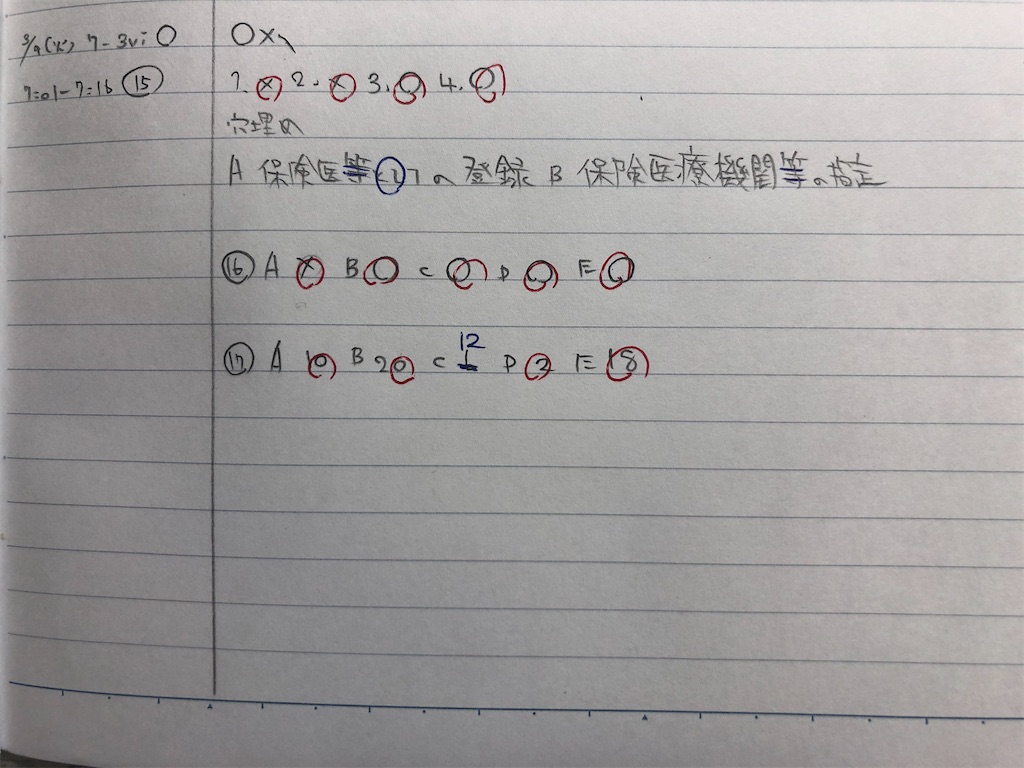 3/9(火) 7-3vi ○
○×
7:01-7:16 ⑮
1.× 2.× 3.○ 4.○
穴埋め
A 保険医等 の登録 B 保険医療機関等の指定
⑯ A × B ○ C ○ D ○ E ○
12
⑰ A 10 B 20 C 1 D 2 E 18